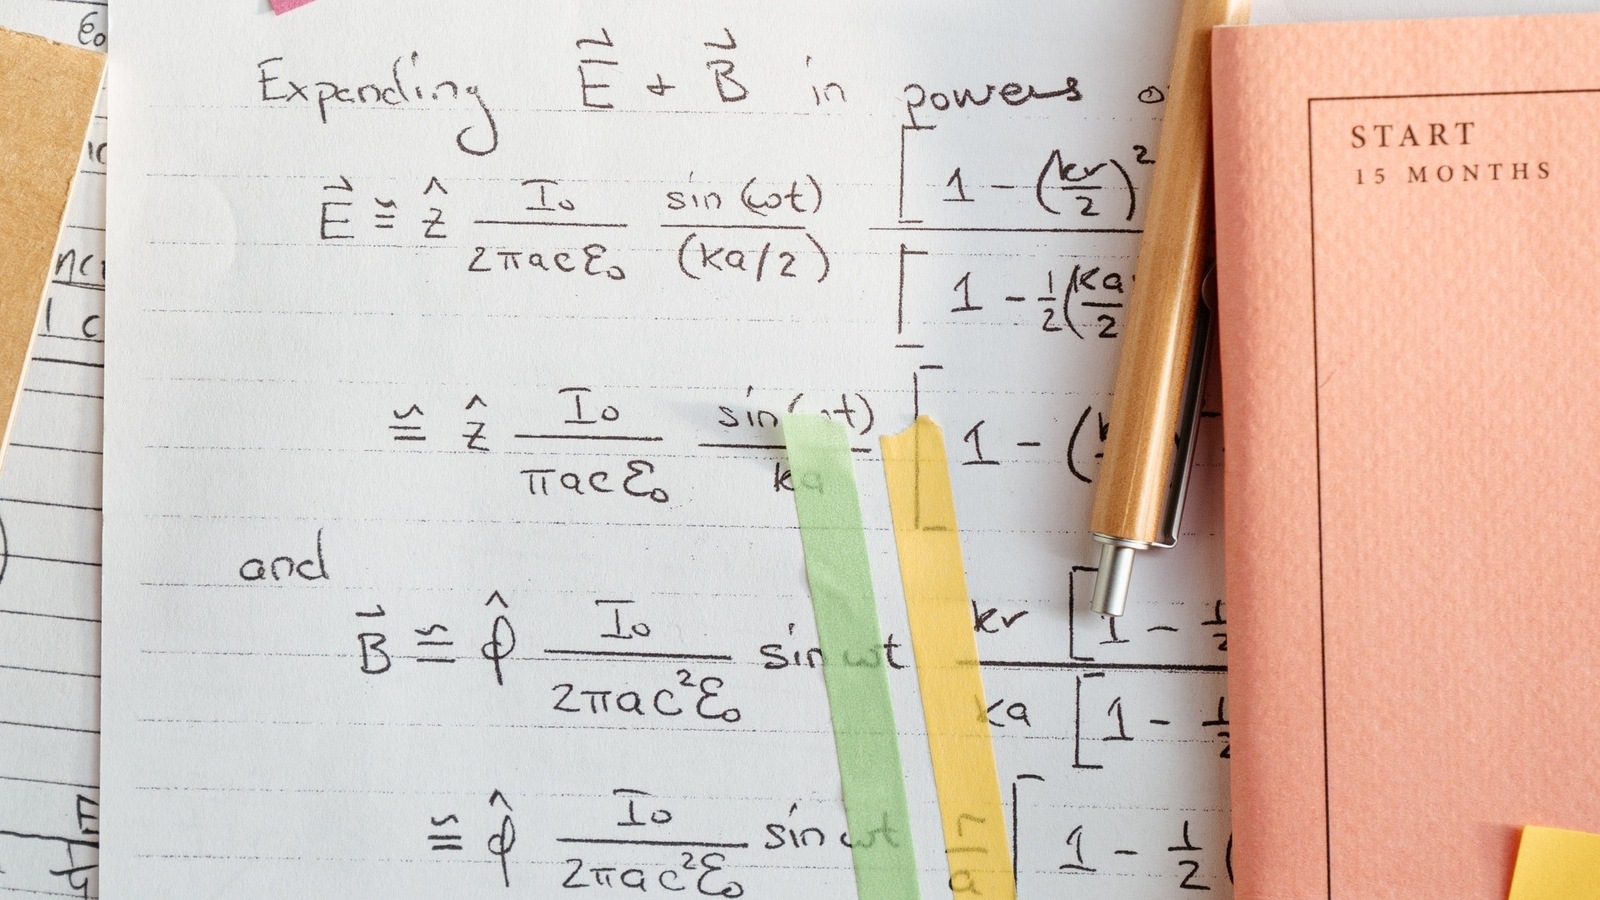 Expanding E⃗ + B⃗ in powers
E⃗ ≅ ẑ I₀/(2πacε₀) sin(ωt)/(ka/2) [1 - (kr/2)²
[1 - ½(ka/2
≅ ẑ I₀/(πacε₀) sin(ωt)/ka [1 - (
and
B⃗ ≅ φ̂ I₀/(2πac²ε₀) sin ωt kr [1 - ½
ka [1 - ½
≅ φ̂ I₀/(2πac²ε₀) sin ωt r/a [1 - ½ (
START
15 MONTHS
ε₀